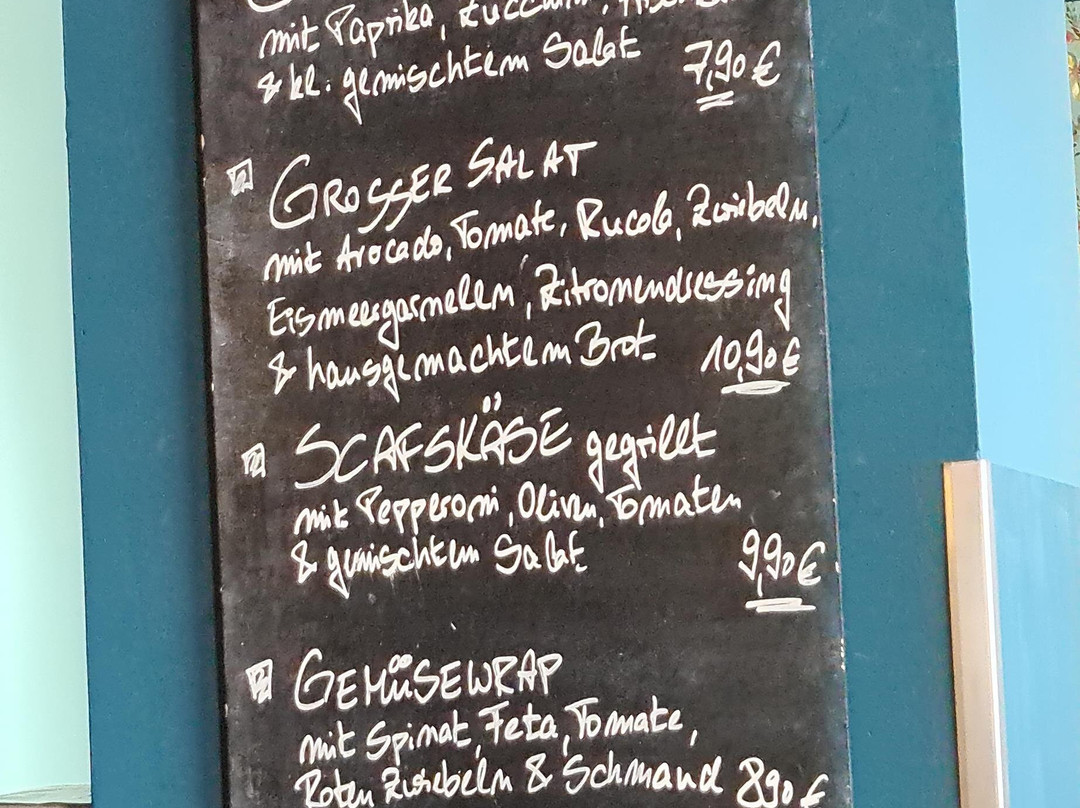 mit Paprika, Zucchini,
& kl. gemischtem Salat 7,90 €
GROSSER SALAT
mit Avocado, Tomate, Rucola, Zwiebeln,
Eismeergarnelen, Zitronendressing
& hausgemachtem Brot 10,90 €
SCAFSKÄSE gegrillt
mit Pepperoni, Oliven, Tomaten
& gemischtem Salat 9,90 €
GEMÜSEWRAP
mit Spinat, Feta, Tomate,
Roten Zwiebeln & Schmand 8,90 €